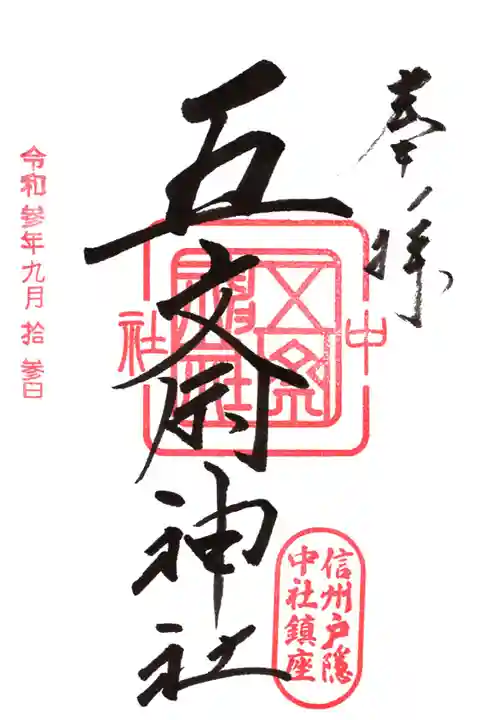 奉拝
五斎神社
中
社
信州戸隠
中社鎮座
令和参年九月拾参日